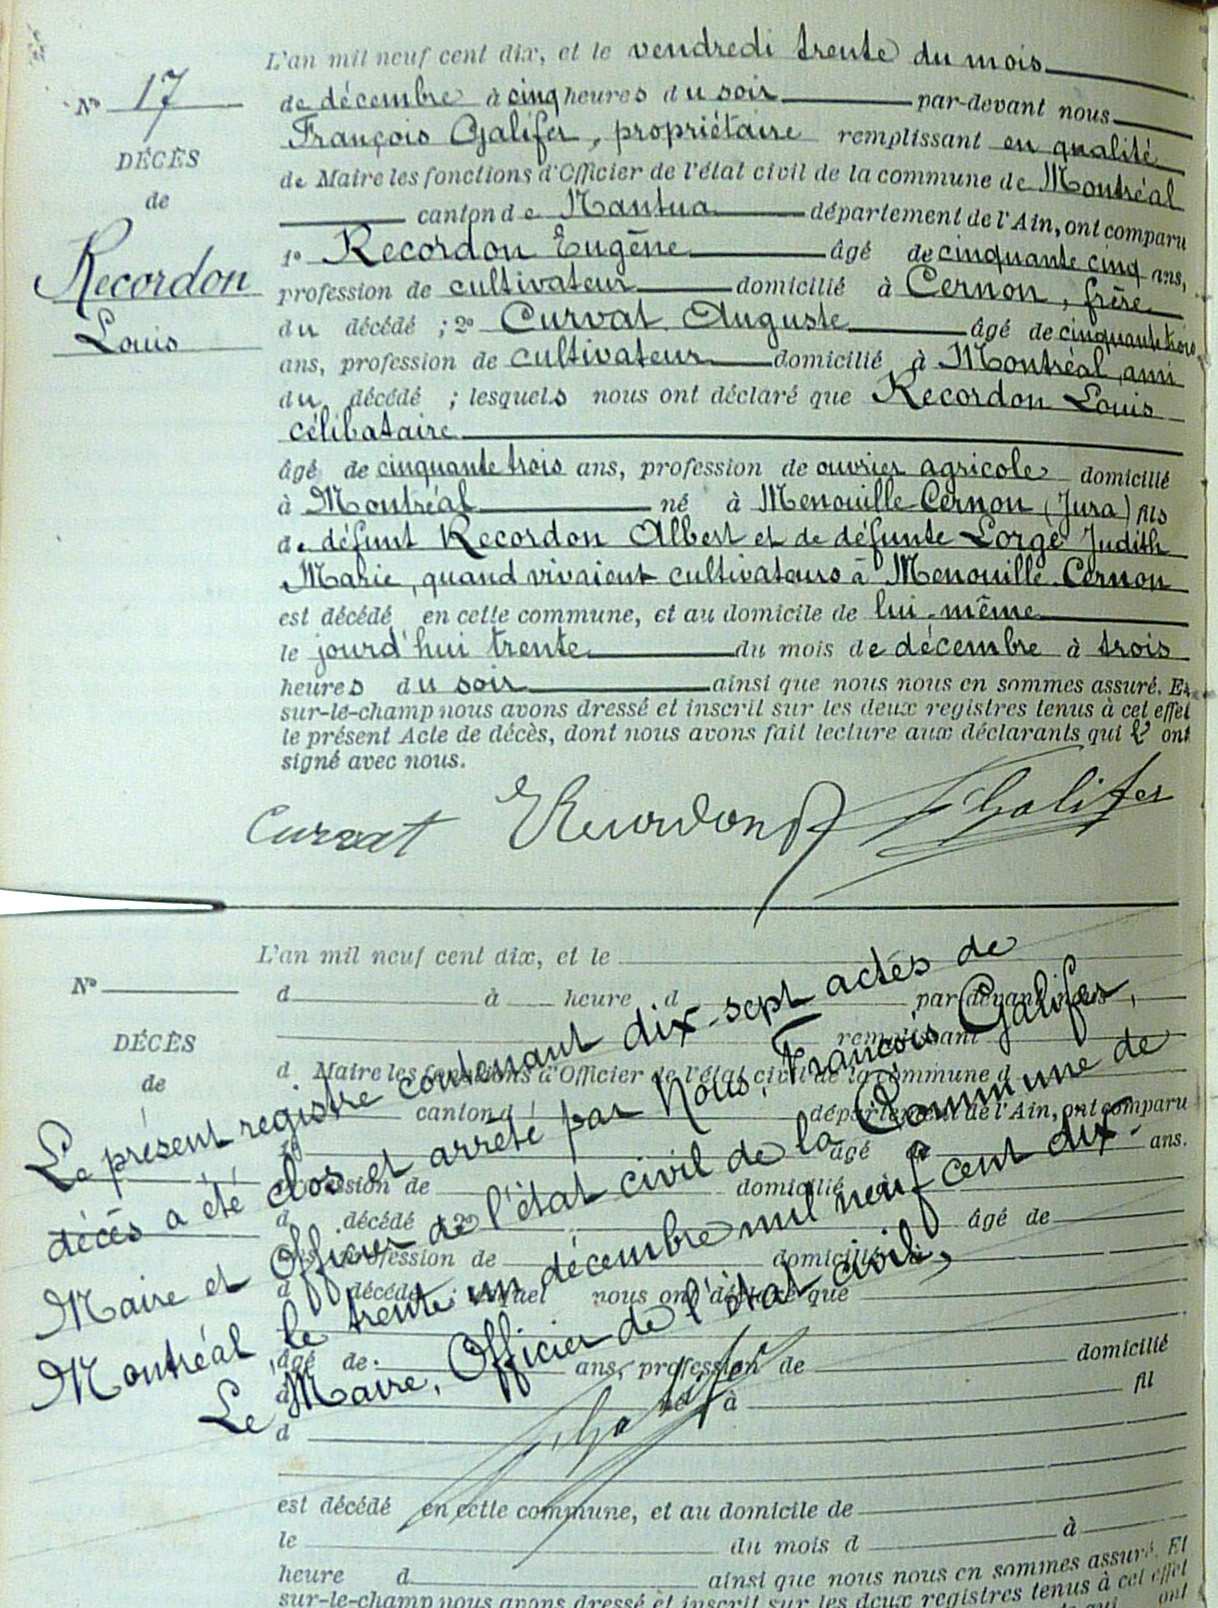 L'an mil neuf cent dix, et le vendredi trente du mois
Nº 17
de décembre à cinq heures du soir par-devant nous
François Galifer, propriétaire remplissant en qualité
DÉCÈS
de Maire les fonctions d'Officier de l'état civil de la commune de Montréal
de
canton de Nantua département de l'Ain, ont comparu
Recordon
Louis
1º Recordon Eugène âgé de cinquante cinq ans,
profession de cultivateur domicilié à Cernon, frère
du décédé ; 2º Curvat Auguste âgé de cinquante trois
ans, profession de cultivateur domicilié à Montréal, ami
du décédé ; lesquels nous ont déclaré que Recordon Louis
célibataire
âgé de cinquante trois ans, profession de ouvrier agricole domicilié
à Montréal né à Menouille-Cernon (Jura) fils
de défunt Recordon Albert et de défunte Lorge Judith
Marie, quand vivaient cultivateurs à Menouille-Cernon
est décédé en cette commune, et au domicile de lui-même
le jourd'hui trente du mois de décembre à trois
heures du soir ainsi que nous nous en sommes assuré. Et
sur-le-champ nous avons dressé et inscrit sur les deux registres tenus à cet effet
le présent Acte de décès, dont nous avons fait lecture aux déclarants qui l'ont
signé avec nous.
Curvat ERecordon Galifer
L'an mil neuf cent dix, et le
Nº
d à heure d par-devant nous
remplissant
DÉCÈS
d Maire les fonctions d'Officier de l'état civil de la commune d
de
canton d département de l'Ain, ont comparu
1º âgé d ans.
profession de domicilié
d décédé 2º âgé de
ans, profession de domicilié
d décédé lequel nous ont déclaré que
âgé de ans, profession de domicilié
d né à fil
d
est décédé en cette commune, et au domicile de
le du mois d à
heure d ainsi que nous nous en sommes assuré. Et
sur-le-champ nous avons dressé et inscrit sur les deux registres tenus à cet effet
qui ont
Le présent registre contenant dix-sept actes de
décès a été clos et arrêté par Nous, François Galifer,
Maire et Officier de l'état civil de la Commune de
Montréal, le trente un décembre mil neuf cent dix-
Le Maire, Officier de l'état civil,
Galifer